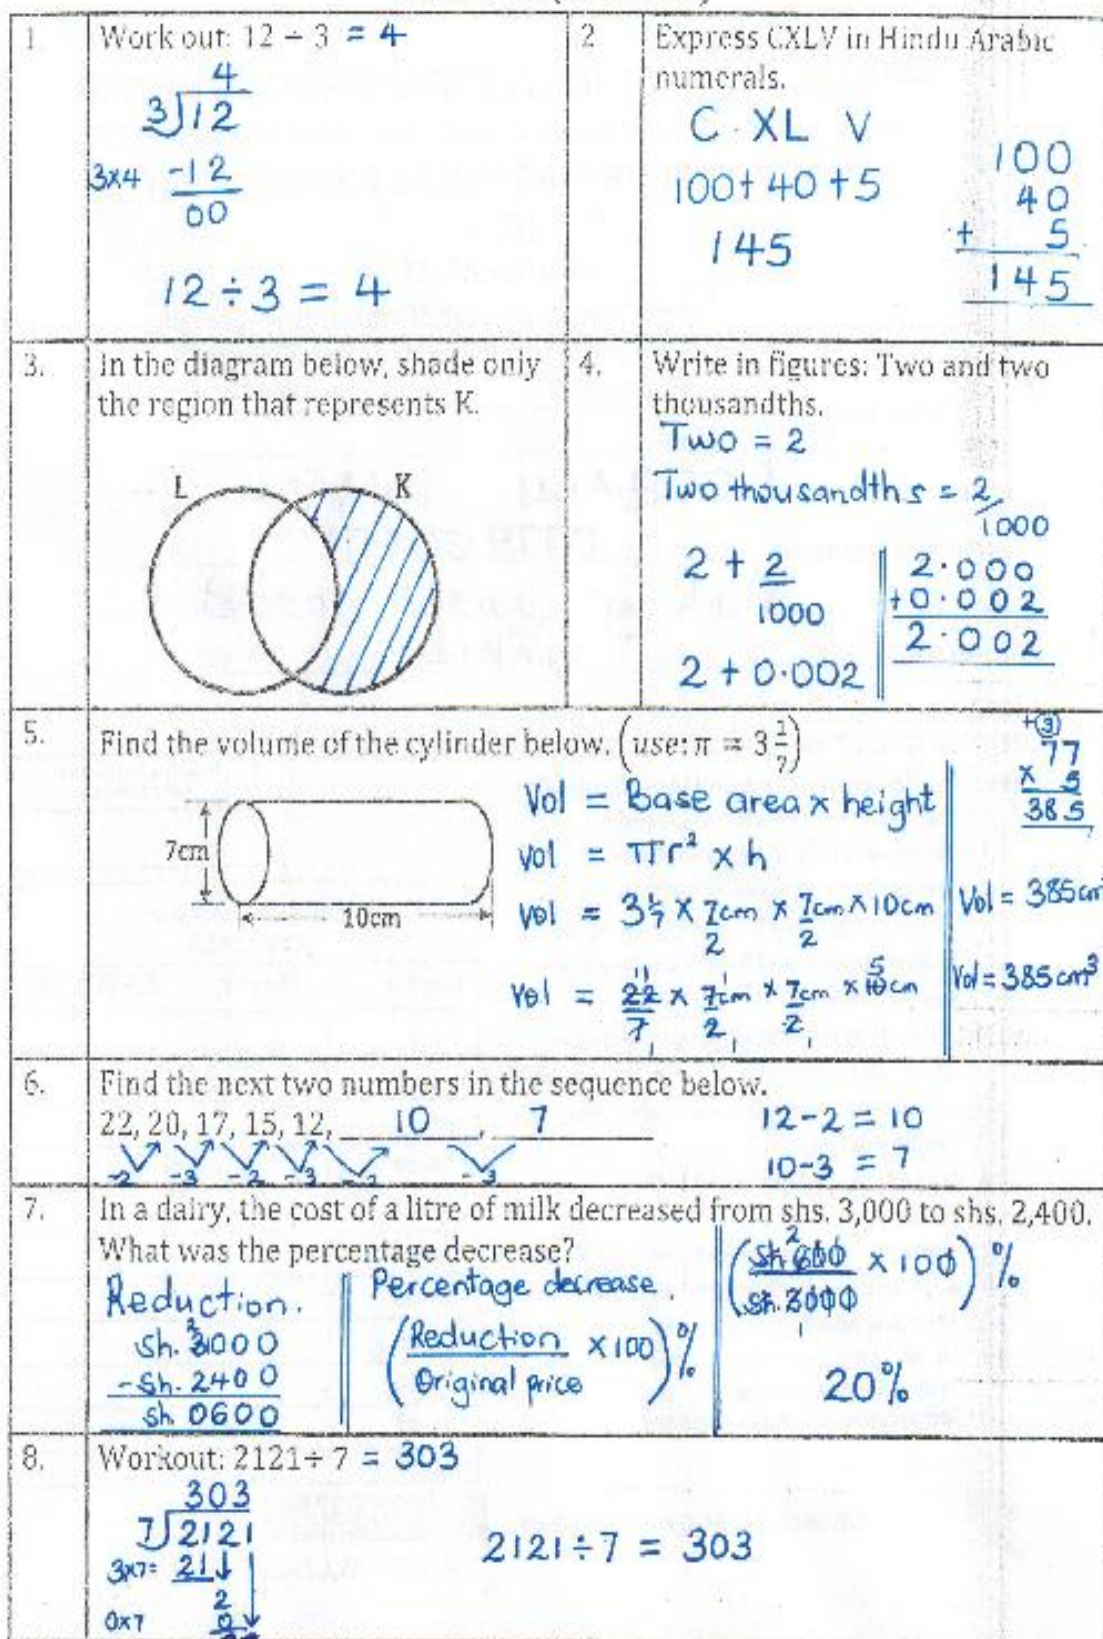 1.
Work out: 12 ÷ 3 = 4
4
3)12
3x4 -12
00
12 ÷ 3 = 4
2
Express CXLV in Hindu Arabic
numerals.
C XL V
100+ 40 +5
145
100
40
+ 5
145
3.
In the diagram below, shade only
the region that represents K.
L K
4.
Write in figures: Two and two
thousandths.
Two = 2
Two thousandths = 2/1000
2 + 2/1000
2 + 0.002
2.000
+0.002
2.002
5.
Find the volume of the cylinder below. (use: π = 3 1/7)
7cm
10cm
Vol = Base area x height
Vol = πr² x h
Vol = 3 1/7 x 7cm/2 x 7cm/2 x 10cm
Vol = 22/7 x 7cm/2 x 7cm/2 x 10cm
11 1 5
1 1 1
+3
77
x 5
385
Vol = 385cm³
Vol = 385cm³
6.
Find the next two numbers in the sequence below.
22, 20, 17, 15, 12, 10, 7
-2 -3 -2 -3 -2 -3
12-2 = 10
10-3 = 7
7.
In a dairy, the cost of a litre of milk decreased from shs. 3,000 to shs. 2,400.
What was the percentage decrease?
Reduction.
2
sh. 3000
-sh. 2400
sh 0600
Percentage decrease.
(Reduction/Original price x100)%
2
(sh 600/sh. 3000 x 100)%
1
20%
8.
Workout: 2121÷ 7 = 303
303
7)2121
3x7= 21
2
0x7 0
2121 ÷ 7 = 303